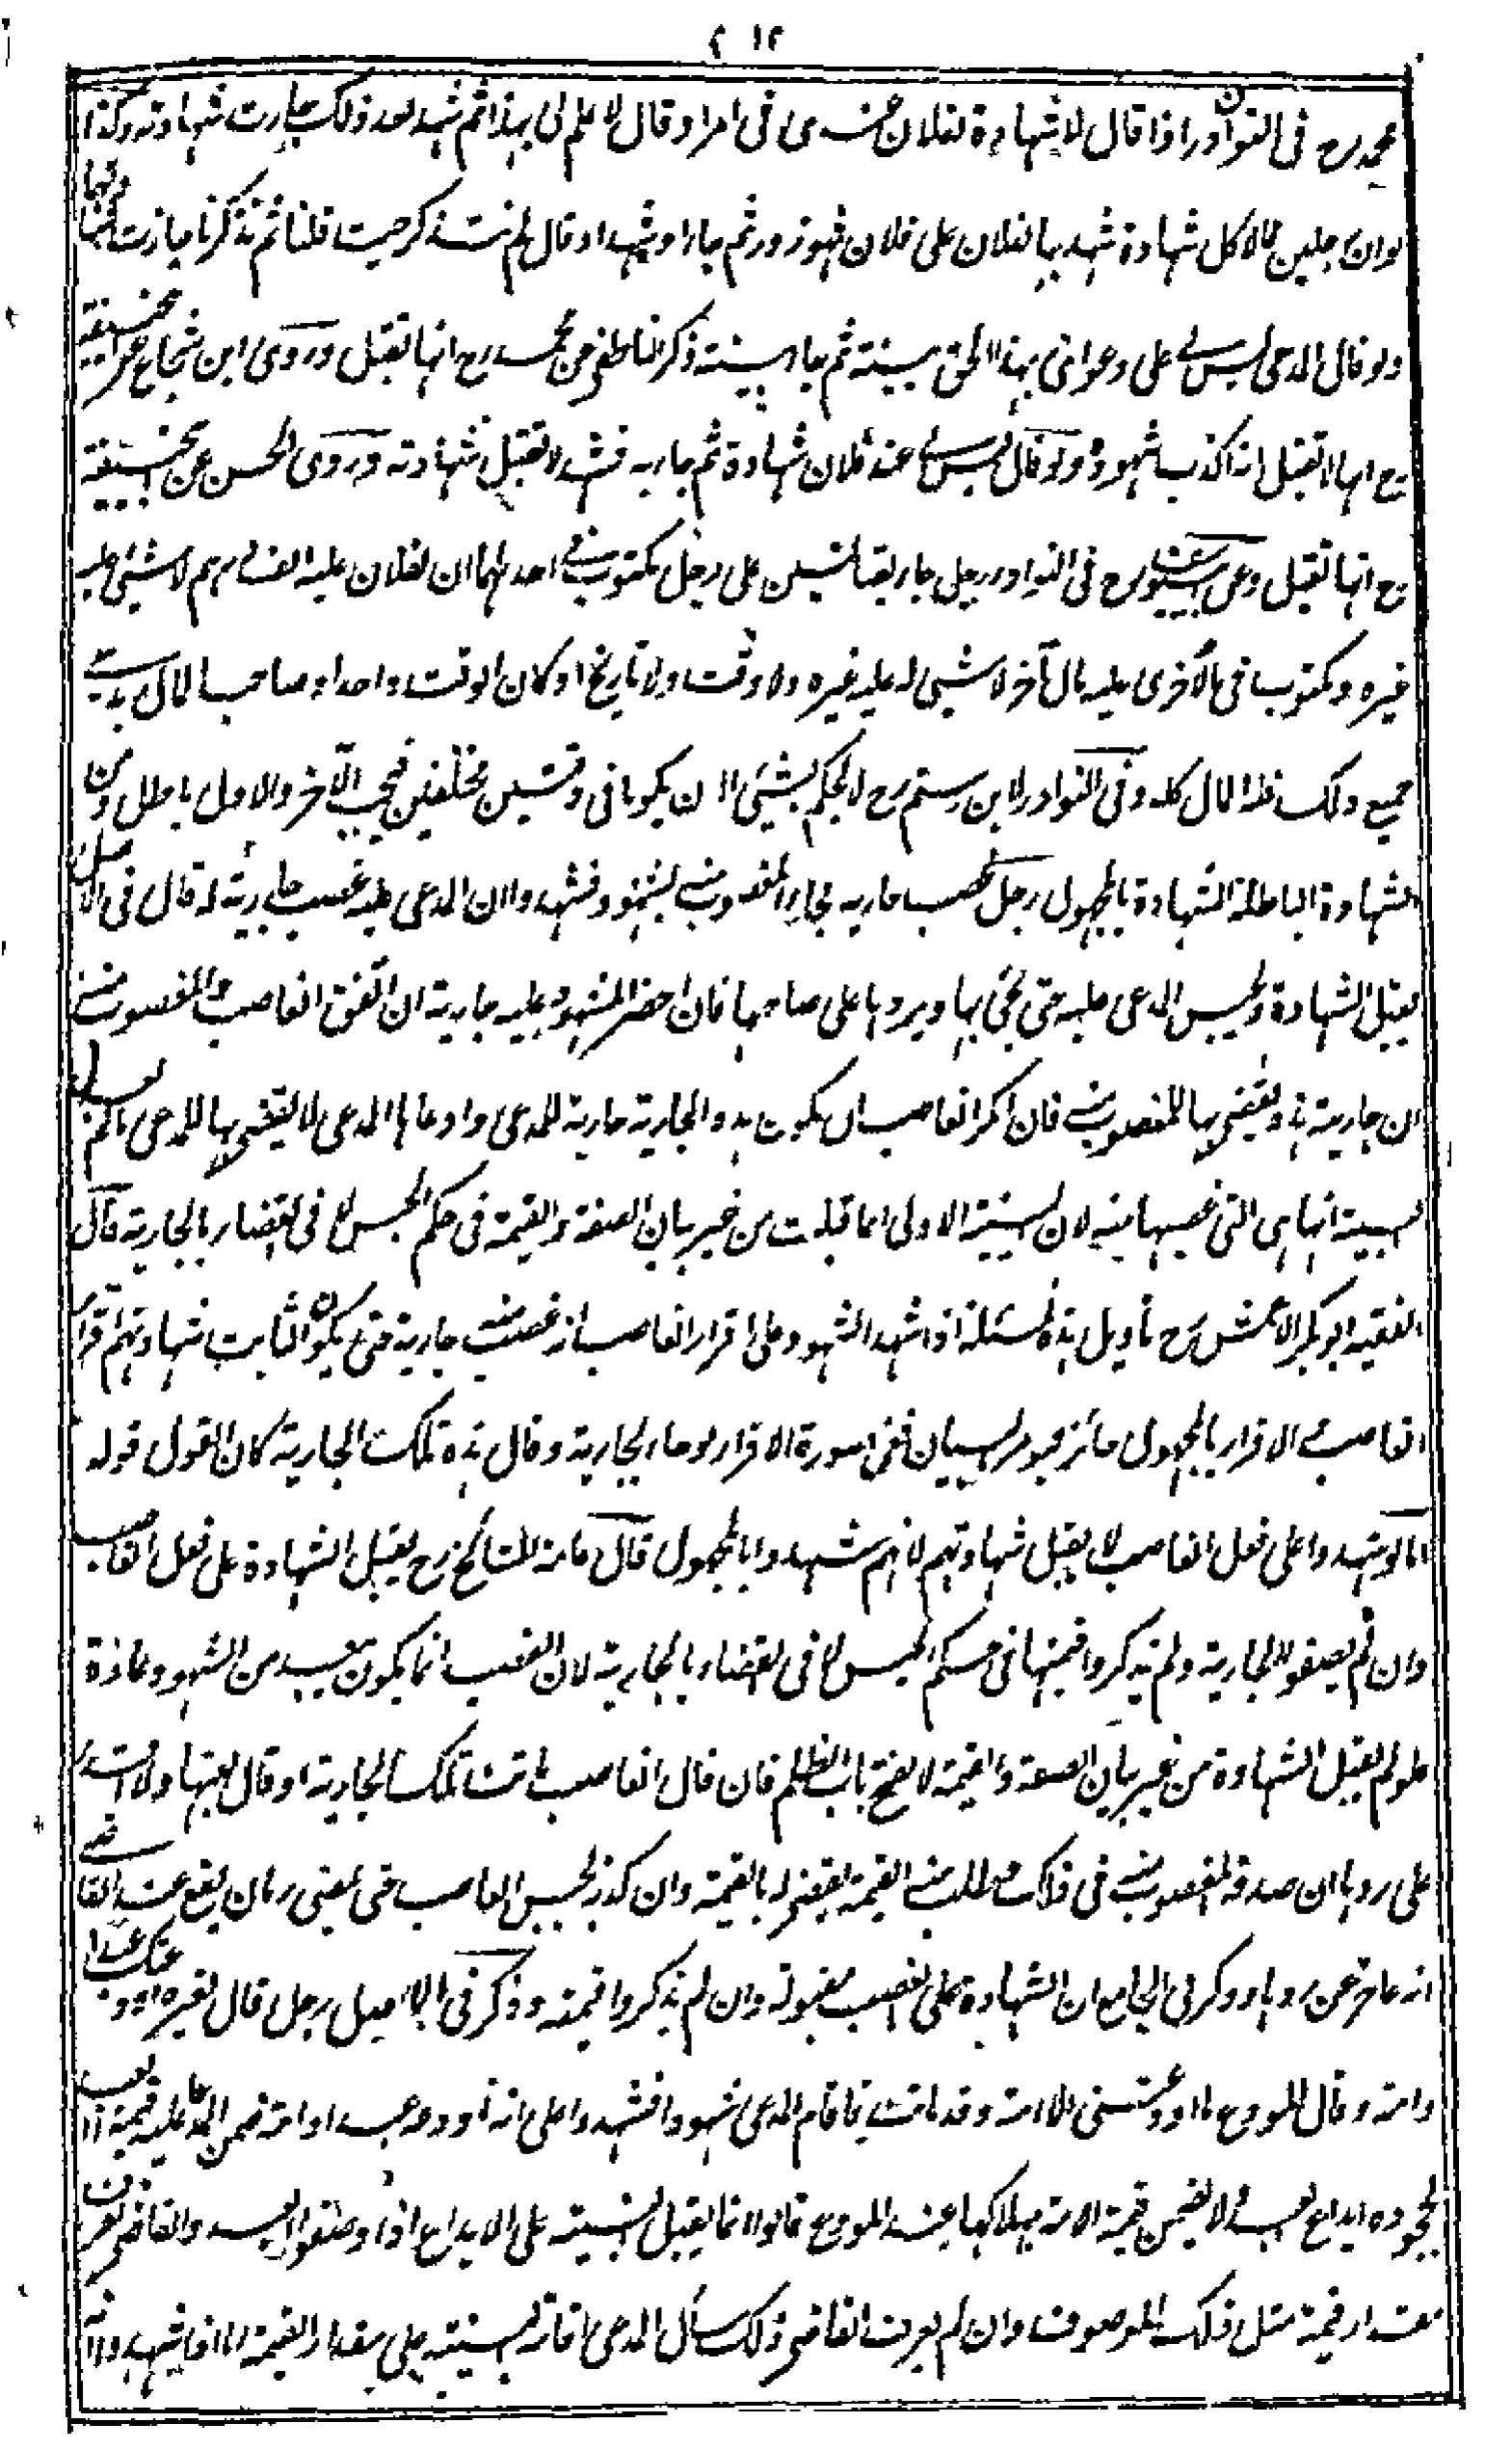 ٤١٢
محمد رح فى النوادر اذا قال لا شهادة لفلان عندى فى امر او قال لا علم لى بهذا ثم شهد بعد ذلك جازت شهادته وكذا
لو ان رجلين قالا كل شهادة شهد بها لفلان على فلان فهو زور ثم جاءا وشهدا وقال لم نتذكر حيث قلنا ثم تذكرنا جازت شهادتهما
ولو قال المدعى ليس لى على دعوائى بهذا الحق بينة ثم جاء ببينة ذكر الناطفى عن محمد رح انها تقبل وروى ابن شجاع عن ابيحنيفة
رح انها لا تقبل لانه اكذب شهوده ولو قال ليس لى عند فلان شهادة ثم جاء به فشهد لا تقبل شهادته وروى الحسن عن ابيحنيفة
رح انها تقبل وعن ابى يوسف رح فى النوادر رجل جاء بقبالتين على رجل مكتوب فى احدىهما ان لفلان عليه الف درهم لا شيئ عليه
غيره ومكتوب فى الاخرى عليه مال آخر لا شيئ له عليه غيره ولا وقت ولا تاريخ او كان الوقت واحدا وصاحب المال يدعى
جميع ذلك فله المال كله وفى النوادر لابن رستم رح لا يحكم بشيئ الا ان يكونا فى وقتين مختلفين فيجب الآخر والاول باطل ومن
الشهادة الباطلة الشهادة بالمجهول رجل غصب جارية فجاء المغصوب منه بشهود فشهدوا ان المدعى عليه غصب جارية له قال فى الاصل
يقبل الشهادة ويحبس المدعى عليه حتى يجئ بها ويردها على صاحبها فان احضر المشهود عليه جارية ان اتفق الغاصب والمغصوب منه
ان جاريته هذه يقضى بها للمغصوب منه فان انكر الغاصب ان يكون هذه الجارية جارية للمدعى وادعاها المدعى لا يقضى بها للمدعى مالم يعد
البينة انها هى التى غصبها منه لان البينة الاولى انما قبلت من غير بيان الصفة والقيمة فى حكم الحبس لا فى القضاء بالجارية قال
الفقيه ابو بكر الاعمش رح تأويل هذه المسئلة اذا شهد الشهود على اقرار الغاصب انه غصب منه جارية حتى يكون الثابت بشهادتهم اقرار
الغاصب الاقرار بالمجهول جائز فيؤمر بالبيان ففى صورة الاقرار لو جاء بالجارية وقال هذه تلك الجارية كان القول قوله
اما لو شهدوا على فعل الغاصب لا يقبل شهادتهم لانهم شهدوا بالمجهول قال عامة المشائخ رح يقبل الشهادة على فعل الغاصب
وان لم يصفوا الجارية ولم يذكروا قيمتها فى حكم الحبس لا فى القضاء بالجارية لان الغصب انما يكون ببعيد من الشهود عادة
فلو لم يقبل الشهادة من غير بيان الصفة والقيمة لانفتح باب الظلم فان قال الغاصب ماتت تلك الجارية او قال بعتها ولا اقدر
على ردها ان صدقه المغصوب منه فى ذلك وطلب منه القيمة يقضى له بالقيمة وان كذبه يحبس الغاصب حتى يمضى زمان يقع عند القاضى
انه عاجز عن ردها وذكر فى الجامع ان الشهادة على الغصب مقبولة وان لم يذكروا قيمته وذكر فى الاصل رجل قال لغيره اودعتك عبدا
وامة وقال المودع ما اودعتنى الا الامة وقد ماتت فاقام المدعى شهودا فشهدوا على انه اودعه عبدا وامة ضمن المدعا عليه قيمة العبد
لجحوده ايداع العبد ولا يضمن قيمة الامة لهلاكها عند المودع قالوا انما يقبل البينة على الايداع اذا وصفوا العبد والقاضى يعرف
مقدار قيمة مثل ذلك الموصوف وان لم يعرف القاضى ذلك سأل المدعى اقامة البينة على مقدار القيمة اما اذا شهدوا انه